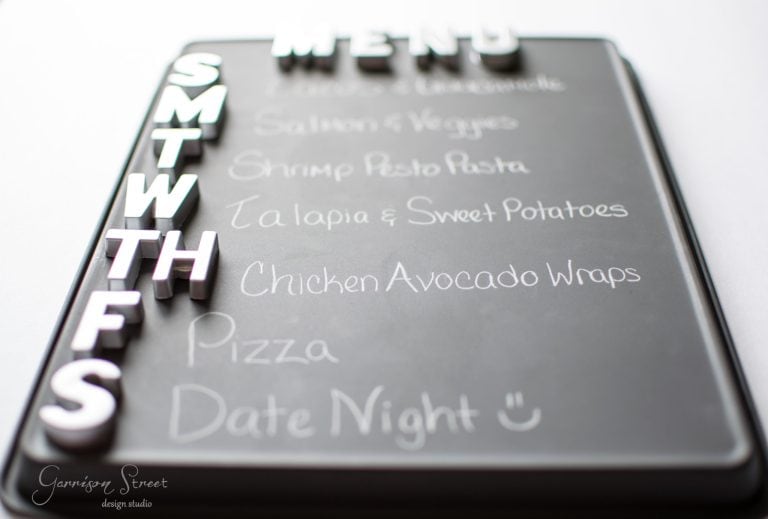 MENU
S
M Salmon & Veggies
T Shrimp Pesto Pasta
W Talapia & Sweet Potatoes
TH Chicken Avocado Wraps
F Pizza
S Date Night
Garrison Street
design studio